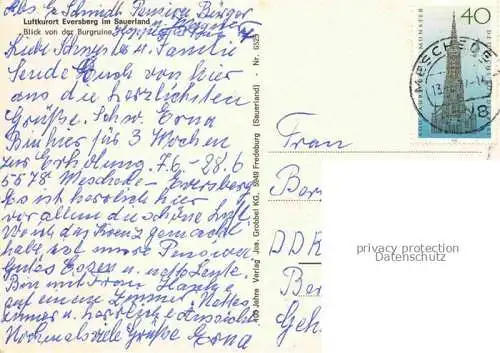 Abs. E. Schmidt Pension Bürger
Luftkurort Eversberg im Sauerland
Blick von der Burgruine
Liebe Schwester u. Familie
Sende Euch von hier
aus die herzlichsten
Grüße. Schw. Erna
Bin hier für 3 Wochen
zur Erholung. 7.6 - 28.6
5778 Meschede - Eversberg
Es ist herrlich hier
vor allem die schöne Luft
habe, ist unsre Pension
Gutes Essen u. nette Leute.
Bin mit Frau
auf einem Zimmer. Nettes
Zimmer u. herrliche Aussicht
Nochmals viele Grüße Erna
400 Jahre Verlag Jos. Grobbel KG, 5949 Fredeburg (Sauerland) - Nr. 6325
40
MESCHEDE
Frau
Ber
DDR
Ber
Geh
privacy protection
Datenschutz